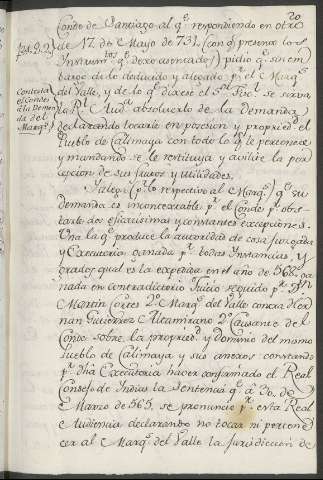 20
Conde de Santiago al qe. respondiendo en otro
de 17 de Mayo de 731 (con qe. presentó los
Instrumtos. qe. dexo apuntados) pidió qe. sin em
bargo de lo deducido y alegado pr. el Marqs.
del Valle, y de lo qe. dixese el Sr. Fiscl. se sirviera
la Rl. Auda. absolverlo de la Demanda
declarando tocarle en posesion y propriedd. el
Pueblo de Calimaya con todo lo qe. le pertenece
y mandando se le restituya y auxilie la per
cepcion de sus frutos y utilidades.
Contesta
el Conde
á la Deman
da del
Marqs.
Y alega (pr. lo respectivo al Marqs.) qe. su
demanda es incontextable pr. el Conde pr. obs-
tarle dos eficacisimas y constantes excepciones.
Una la qe. produce la autoridad de cosa juzgada
y Executoria ganada pr. todas Instancias, y
grados qual es la expedida en el año de 568 ga
nada en contradictorio Juicio seguido pr. Dn.
Martin Cortes 2o. Marqs. del Valle contra Her
nan Gutierrez Altamirano 2o. Causante del
Conde sobre la propriedd. y dominio del mismo
Pueblo de Calimaya y sus anexos: constando
pr. dha Executoria haver confirmado el Real
Consejo de Indias la Sentencia qe. á 30 de
Marzo de 565. se pronunció pr. esta Real
Audiencia declarando no tocar ni pertene
cer al Marqs. del Valle la Jurisdiccion de